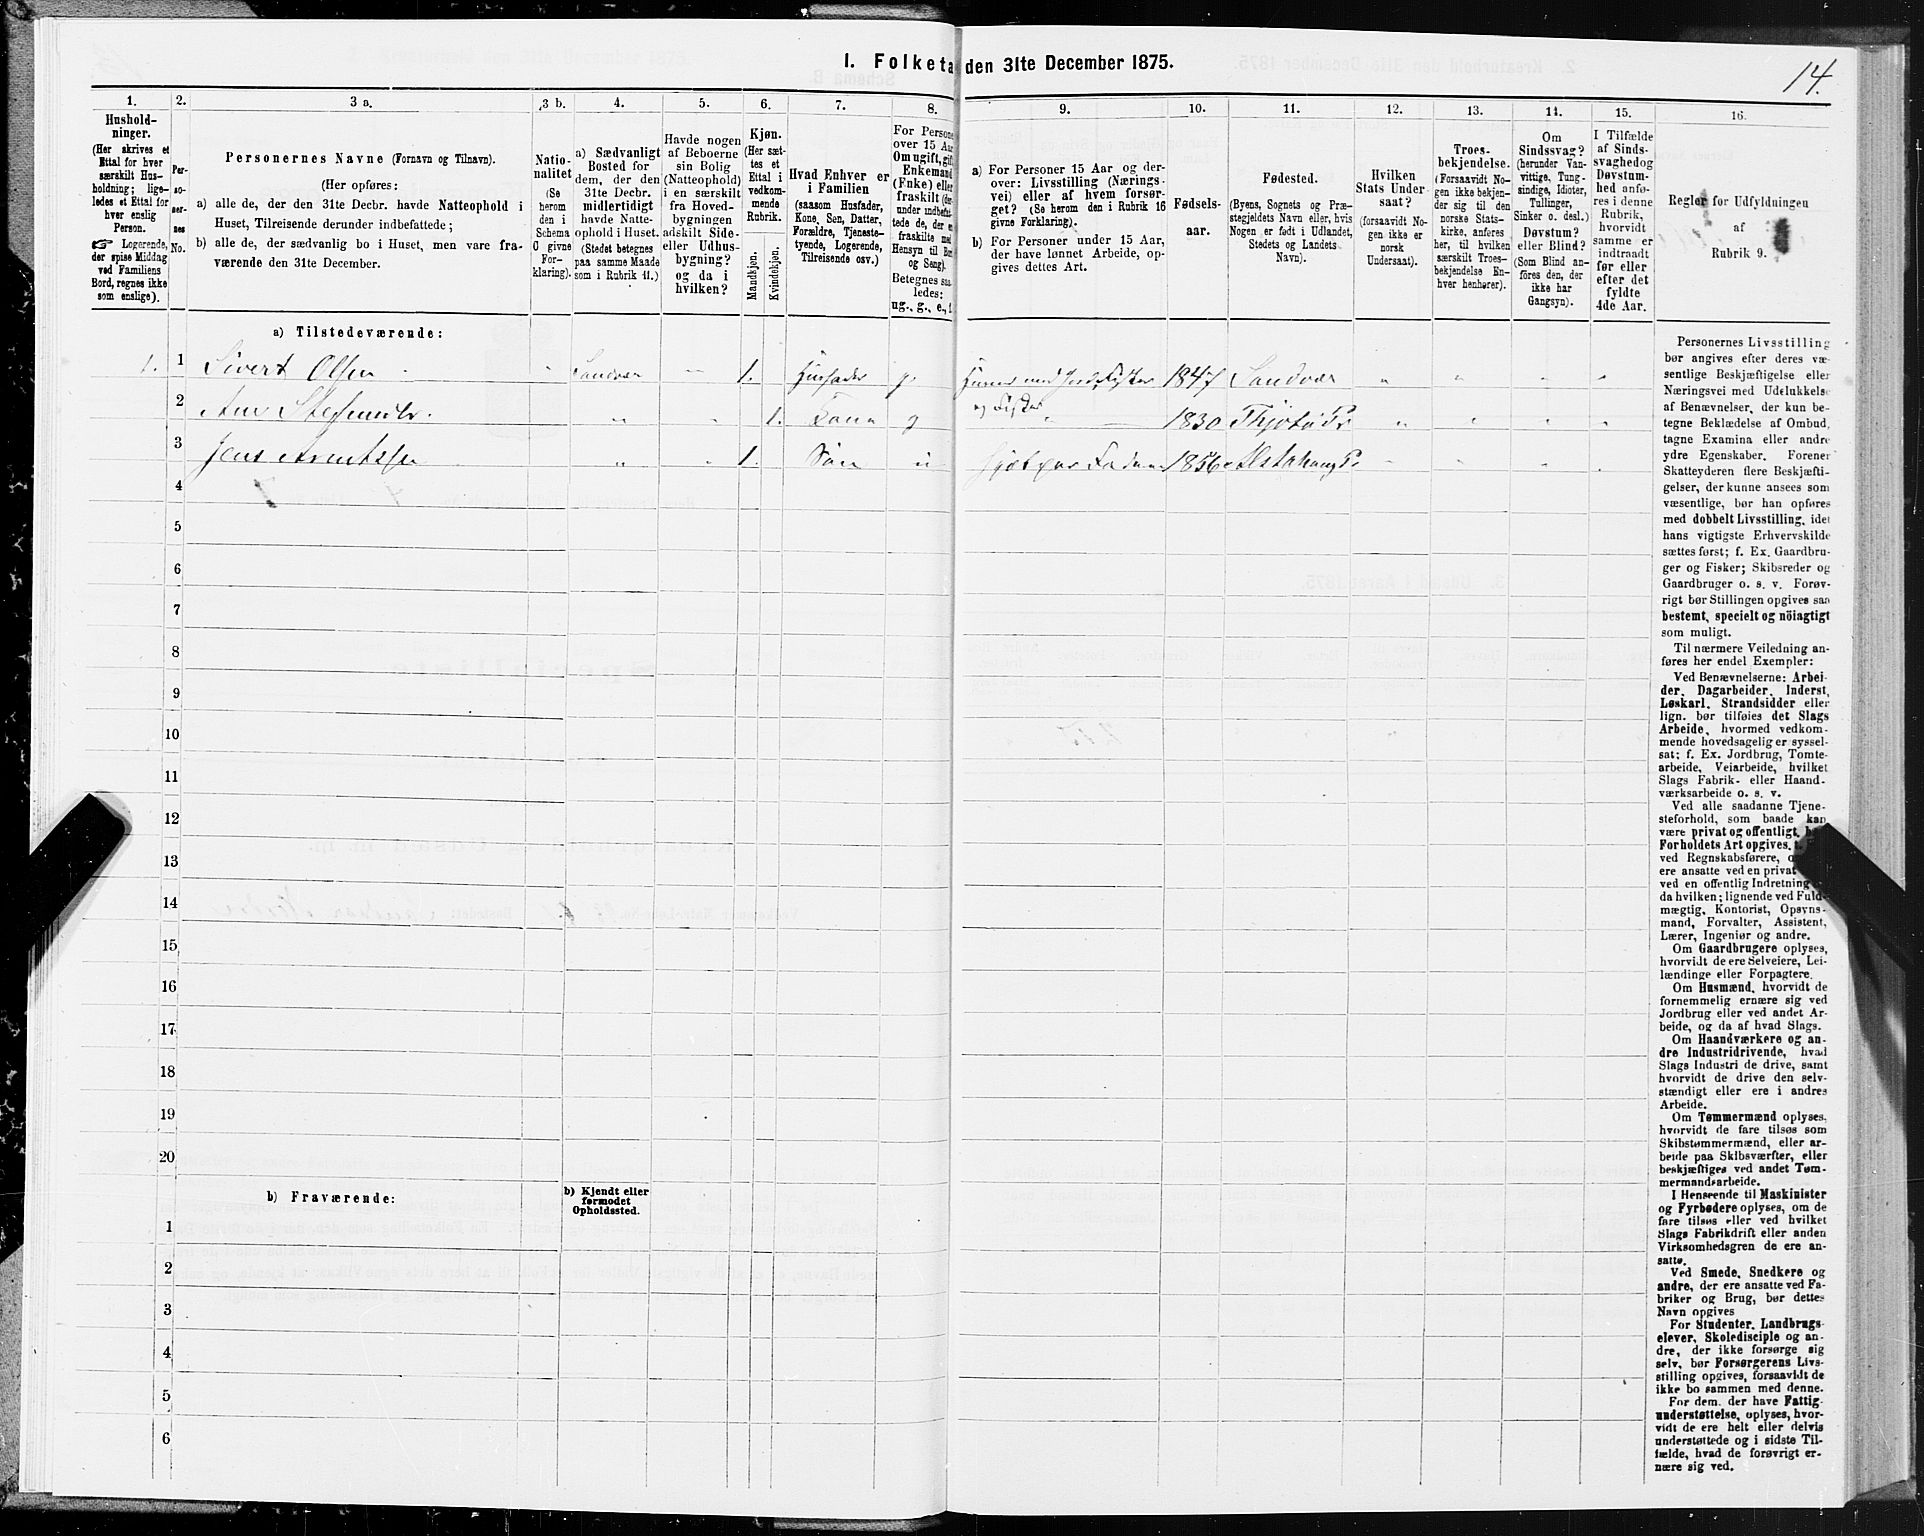 I. Folketa den 31te December 1875.
14.
1.
2.
3 a.
3 b.
4.
5.
6.
7.
8.
9.
10.
11.
12.
13.
14.
15.
16.
Hushold-
ninger.
(Her skrives et
Ettal for hver
særskilt Hus-
holdning; lige-
ledes et Ettal for
hver enslig
Person.
☞ Logerende,
der spise Middag
ved Familiens
Bord, regnes ikke
som enslige).
Per-
so-
ner-
nes
No.
Personernes Navne (Fornavn og Tilnavn).
(Her opføres:
a) alle de, der den 31te Decbr. havde Natteophold i
Huset, Tilreisende derunder indbefattede;
b) alle de, der sædvanlig bo i Huset, men vare fra-
værende den 31te December.
Natio-
nalitet
(Se
herom
den i
Schema
C givne
For-
klaring).
a) Sædvanligt
Bosted for
dem, der den
31te Decbr.
midlertidigt
havde Natte-
ophold i Huset.
(Stedet betegnes
paa samme Maade
som i Rubrik 11.)
Havde nogen
af Beboerne
sin Bolig
(Natteophold)
i en særskilt
fra Hoved-
bygningen
adskilt Side-
eller Udhus-
bygning?
og da i
hvilken?
Kjøn.
(Her sæt-
tes et
Ettal i
vedkom-
mende
Rubrik.
Mandkjøn.
Kvindekjøn.
Hvad Enhver er
i Familien
(saasom Husfader,
Kone, Søn, Datter,
Forældre, Tjeneste-
tyende, Logerende,
Tilreisende osv.)
For Persone
over 15 Aar
Om ugift, gift
Enkemand
(Enke) eller
fraskilt (der-
under indbefat-
tede de, der e
fraskilte med
Hensyn til Bor
og Seng).
Betegnes saa
ledes:
ug., g., e., f.
a) For Personer 15 Aar og der-
over: Livsstilling (Nærings-
vei) eller af hvem forsør-
get? (Se herom den i Rubrik 16
givne Forklaring).
b) For Personer under 15 Aar,
der have lønnet Arbeide, op-
gives dettes Art.
Fødsels-
aar.
Fødested.
(Byens, Sognets og Præ-
stegjeldets Navn eller, hvis
Nogen er født i Udlandet,
Stedets og Landets
Navn).
Hvilken
Stats Under-
saat?
(forsaavidt No-
gen ikke er
norsk
Undersaat).
Troes-
bekjendelse.
(Forsaavidt No-
gen ikke bekjen-
der sig til den
norske Stats-
kirke, anføres
her, til hvilken
særskilt Troes-
bekjendelse En-
hver henhører).
Om
Sindssvag?
(herunder Van-
vittige, Tung-
sindige, Idioter,
Tullinger,
Sinker o. desl.)
Døvstum?
eller Blind?
(Som Blind an-
føres den, der
ikke har
Gangsyn).
I Tilfælde
af Sinds-
svaghed og
Døvstum-
hed anfø-
res i denne
Rubrik,
hvorvidt
samme er
indtraadt
før eller
efter det
fyldte
4de Aar.
Regler for Udfyldningen
af
Rubrik 9.
a) Tilstedeværende:
1. 1 Sivert Olsen Sandvær 1. Husfader g. 1847 Sandvær
2 1. Kone g og Fisker 1830 Thjøtø Pr
3 Jens Arntsen 1. Søn u Hjælper Faderen 1856 Alstahaug Pr.
4
5
6
7
8
9
10
11
12
13
14
15
16
17
18
19
20
b) Fraværende:
b) Kjendt eller
formodet
Opholdssted.
1
2
3
4
5
6
Personernes Livsstilling
bør angives efter deres væ-
sentlige Beskjæftigelse eller
Næringsvei med Udelukkelse
af Benævnelser, der kun be-
tegne Beklædelse af Ombud,
tagne Examina eller andre
ydre Egenskaber. Forener
Skatteyderen flere Beskjæfti-
gelser, der kunne ansees som
væsentlige, bør han opføres
med dobbelt Livsstilling, idet
hans vigtigste Erhvervskilde
sættes først; f. Ex. Gaardbru-
ger og Fisker; Skibsreder og
Gaardbruger o. s. v. Forøv-
rigt bør Stillingen opgives saa
bestemt, specielt og nöiagtigt
som muligt.
Til nærmere Veiledning an-
føres her endel Exempler:
Ved Benævnelserne: Arbei-
der, Dagarbeider, Inderst,
Løskarl, Strandsidder eller
lign. bør tilføies det Slags
Arbeide, hvormed vedkom-
mende hovedsagelig er syssel-
sat; f. Ex. Jordbrug, Tomte-
arbeide, Veiarbeide, hvilket
Slags Fabrik- eller Haand-
værksarbeide o. s. v.
Ved alle saadanne Tjene-
steforhold, som baade kan
være privat og offentligt,
Forholdets Art opgives.
ved Regnskabsførere,
ere ansatte ved en privat
ved en offentlig Indretning
da hvilken; lignende ved Fuld-
mægtig, Kontorist, Opsyns-
mand, Forvalter, Assistent,
Lærer, Ingeniør og andre.
Om Gaardbrugere oplyses,
hvorvidt de ere Selveiere, Lei-
lændinge eller Forpagtere.
Om Husmænd, hvorvidt de
fornemmelig ernære sig ved
Jordbrug eller ved andet Ar-
beide, og da af hvad Slags.
Om Haandværkere og an-
dre Industridrivende, hvad
Slags Industri de drive, samt
hvorvidt de drive den selv-
stændigt eller ere i andres
Arbeide.
Om Tømmermænd oplyses,
hvorvidt de fare tilsøs som
Skibstømmermænd, eller ar-
beide paa Skibsværfter, eller
beskjæftiges ved andet Tøm-
mermandsarbeide.
I Henseende til Maskinister
og Fyrbødere oplyses, om de
fare tilsøs eller ved hvilket
Slags Fabrikdrift eller anden
Virksomhedsgren de ere an-
satte.
Ved Smede, Snedkere og
andre, der ere ansatte ved Fa-
briker og Brug, bør dettes
Navn opgives
For Studenter, Landbrugs-
elever, Skoledisciple og an-
dre, der ikke forsørge sig
selv, bør Forsørgerens Livs-
stilling opgives, forsaavidt de
ikke bo sammen med denne.
For dem, der have Fattig-
understøttelse, oplyses, hvor-
vidt de ere helt eller delvis
understøttede og i sidste Til-
fælde, hvad de forøvrigt er-
nære sig ved.